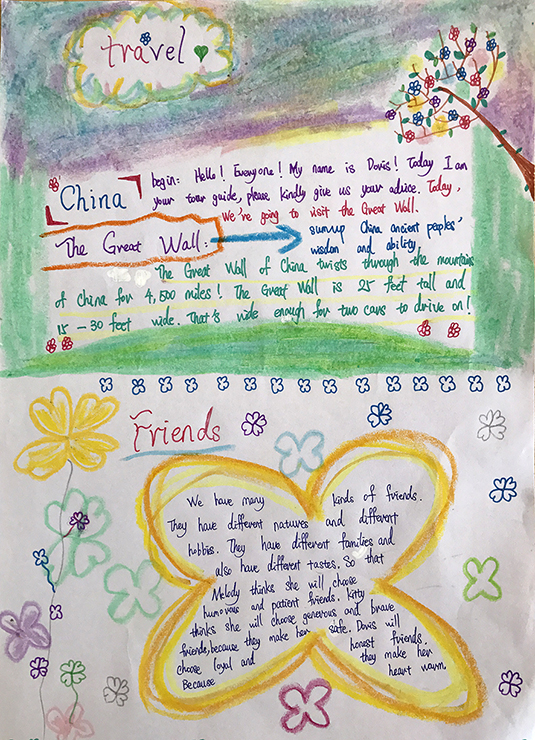 travel
China
begin: Hello! Everyone! My name is Davis! Today I am
your tour guide, please kindly give us your advice. Today,
We're going to visit the Great Wall.
The Great Wall:
sumup China ancient peoples'
wisdom and ability.
The Great Wall of China twists through the mountains
of China for 4,500 miles! The Great Wall is 25 feet tall and
15-30 feet wide. That's wide enough for two cars to drive on!
Friends
We have many kinds of friends.
They have different natures and different
hobbis. They have different families and
also have different tastes. So that
Melody thinks she will choose
humorous and patient friends. Kitty
thinks she will choose generous and brave
friends, because they make her safe. Davis will
choose loyal and honest friends.
Because they make her
heart warm